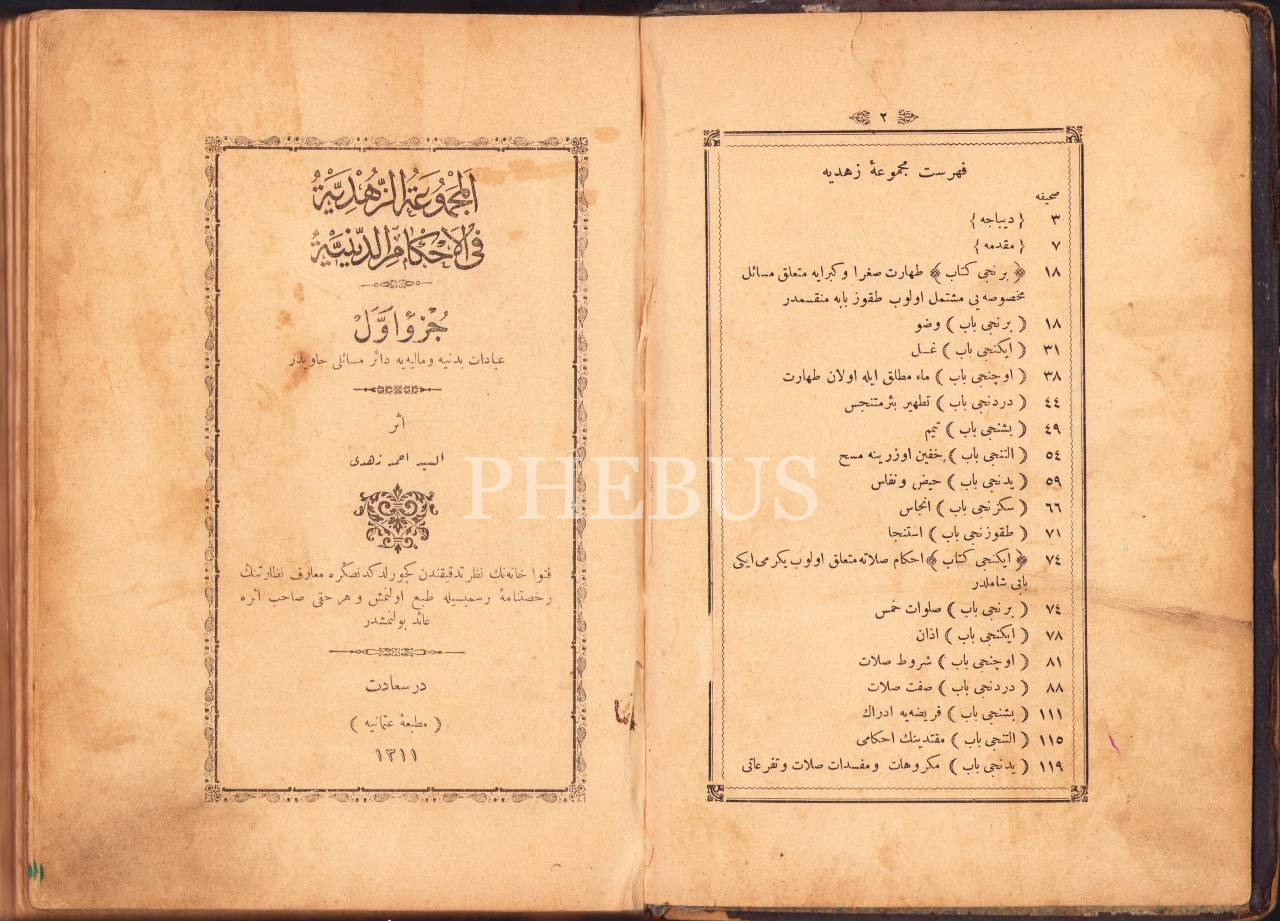 المجموعة الزهدية
فى الاحكام الدينية
جزؤ اول
عبادات بدنیه و مالیه‌یه دائر مسائلى حاویدر
اثر
السید احمد زهدى
فتوا خانه‌نك نظر تدقیقندن کچورلدکدنصکره معارف نظارتنك
رخصتنامهٔ رسمیسیله طبع اولنمش و هر حقى صاحب اثره
عائد بولنمشدر
در سعادت
( مطبعهٔ عثمانیه )
١٣١١
٢
فهرست مجموعهٔ زهدیه
صحیفه
٣ { دیباجه }
٧ { مقدمه }
١٨ ﴿ برنجى کتاب ﴾ طهارت صغرا و کبرایه متعلق مسائل
مخصوصه‌یى مشتمل اولوب طقوز بابه منقسمدر
١٨ ( برنجى باب ) وضو
٣١ ( ایکنجى باب ) غسل
٣٨ ( اوچنجى باب ) ماء مطلق ایله اولان طهارت
٤٤ ( دردنجى باب ) تطهیر بئر متنجس
٤٩ ( بشنجى باب ) تیمم
٥٤ ( التنجى باب ) خفین اوزرینه مسح
٥٩ ( یدنجى باب ) حیض و نفاس
٦٦ ( سکزنجى باب ) انجاس
٧١ ( طقوزنجى باب ) استنجا
٧٤ ﴿ ایکنجى کتاب ﴾ احکام صلاته متعلق اولوب یکرمى ایکى
بابى شاملدر
٧٤ ( برنجى باب ) صلوات خمس
٧٨ ( ایکنجى باب ) اذان
٨١ ( اوچنجى باب ) شروط صلات
٨٨ ( دردنجى باب ) صفت صلات
١١١ ( بشنجى باب ) فریضه‌یه ادراك
١١٥ ( التنجى باب ) مقتدینك احکامى
١١٩ ( یدنجى باب ) مکروهات و مفسدات صلات و تفرعاتى
PHEBUS